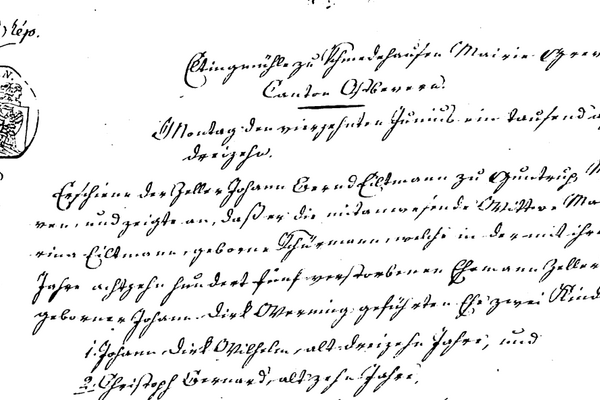 rép.
N.
Eltingmühle zu Schmedehausen Mairie Greven
Canton Ostbevern.
Montag den vierzehnten Junius ein tausend a
dreizehn.
Erschiene der Zeller Johann Bernd Eiltmann zu Guntrup M
ven, und zeigte an, daß er die mitanwesende Wittwe Ma
rina Eiltmann, geborne Schürmann, welche in der mit ihre
Jahre achtzehn hundert fünf verstorbenen Ehemann Zeller
geborner Johann Dirk Werning geführten Ehe zwei Kind
1. Johann Dirk Wilhelm, alt dreizehn Jahre, und
2. Christoph Bernard, alt zehn Jahre,